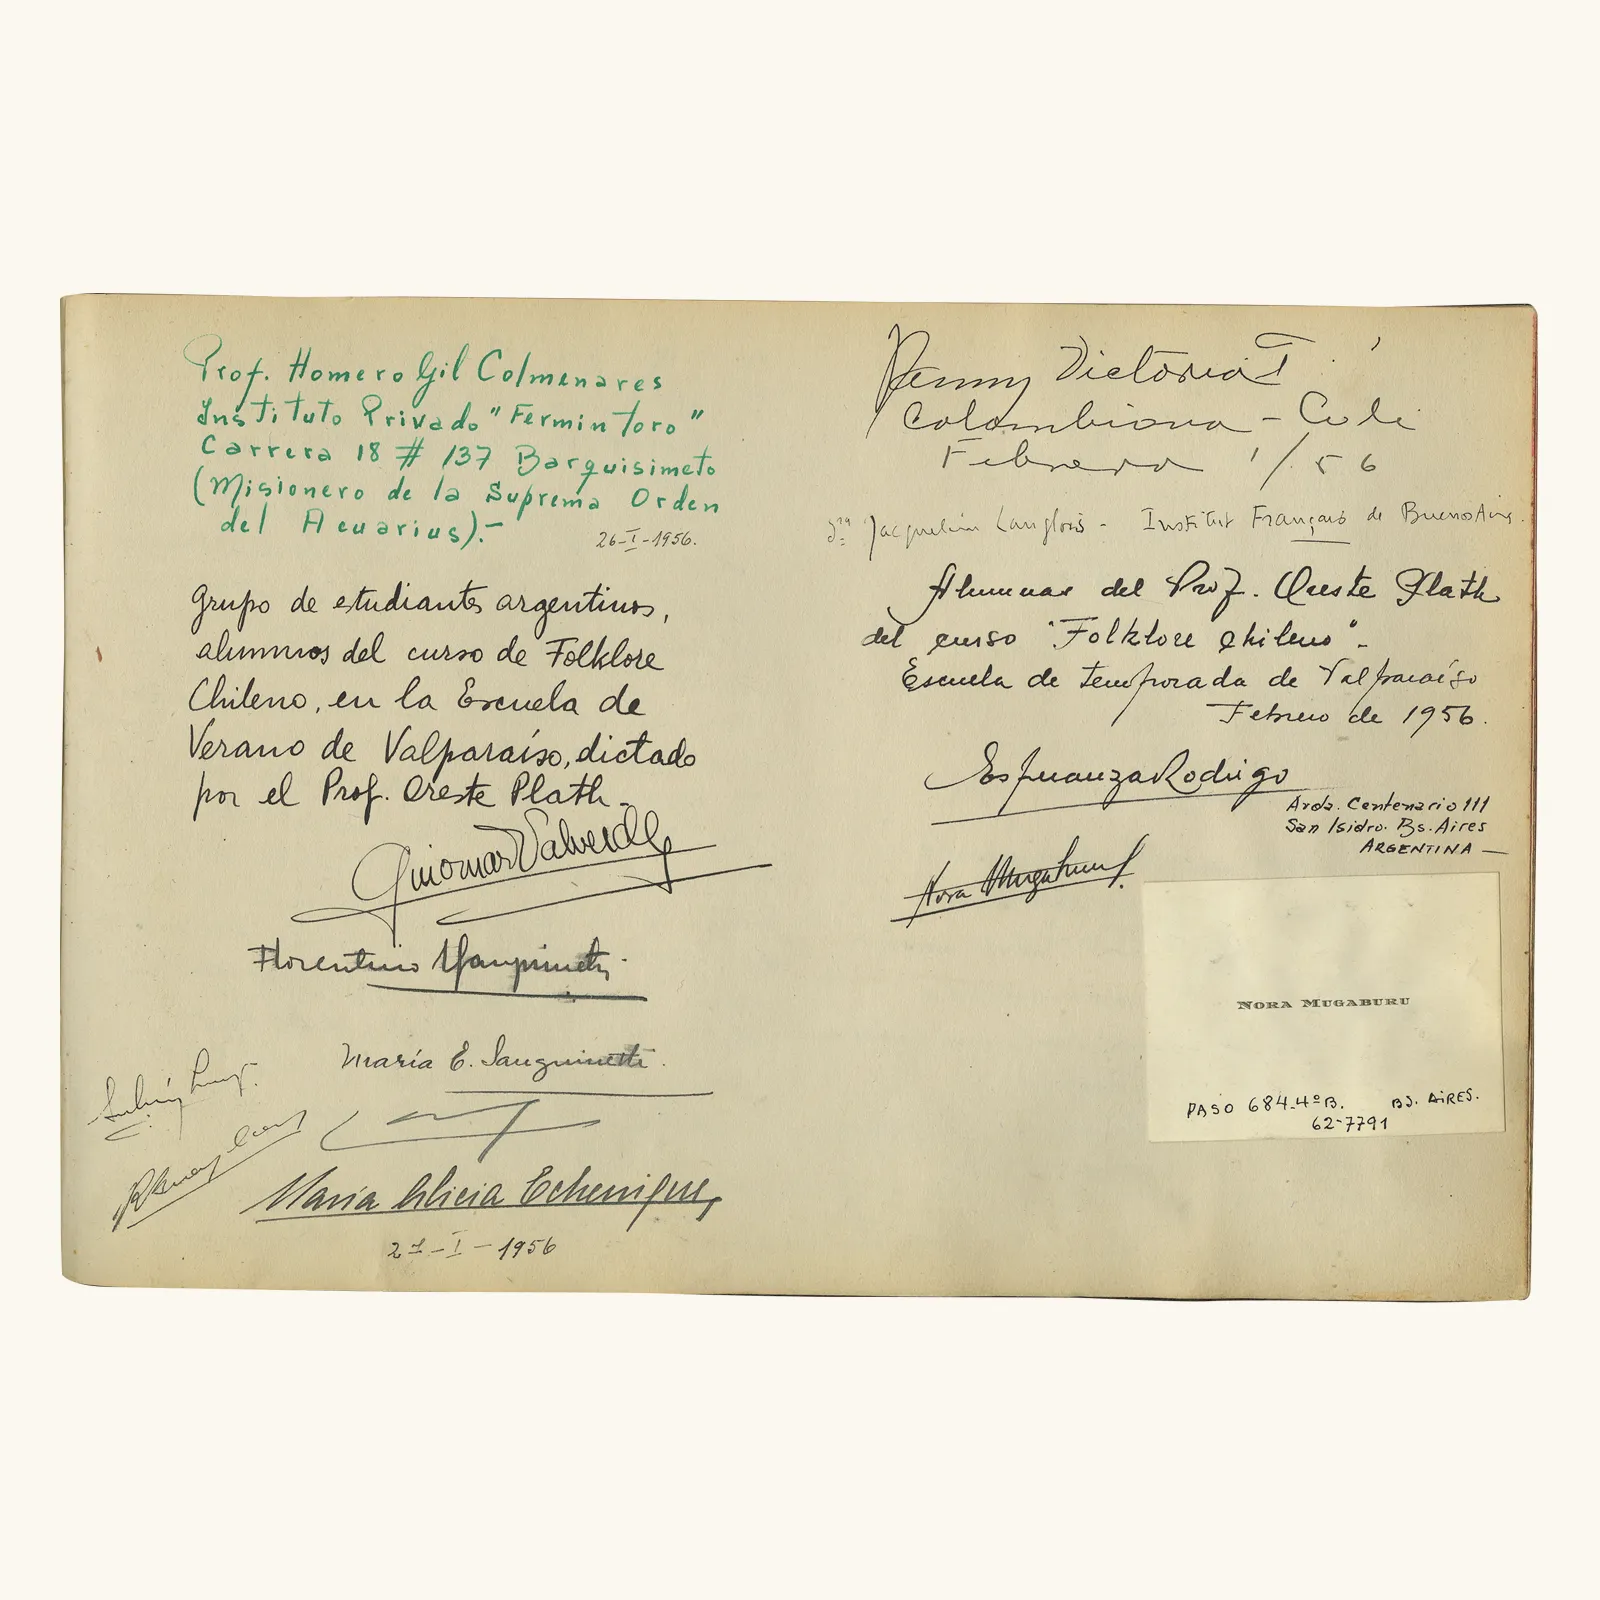 Prof. Homero Gil Colmenares
Instituto Privado "Fermin Toro"
Carrera 18 # 137 Barquisimeto
(Misionero de la Suprema Orden
del Acuarius).-
26-I-1956.
Grupo de estudiantes argentinos,
alumnos del curso de Folklore
Chileno, en la Escuela de
Verano de Valparaíso, dictado
por el Prof. Oreste Plath.
Guiomar Valverde
Florentino
María E. Sanguinetti.
María Alicia Echenique
27-I-1956
Victoria T.
Colombiana - Cali
Febrero 1/56
Sra Jacqueline Langlois - Institut Français de Buenos Aires.
Alumnas del Prof. Oreste Plath
del curso "Folklore Chileno".-
Escuela de temporada de Valparaíso
Febrero de 1956.
Esperanza Rodrigo
Avda. Centenario 111
San Isidro. Bs. Aires
ARGENTINA —
Nora Mugaburu
NORA MUGABURU
PASO 684-4º B. BS. AIRES.
62-7791